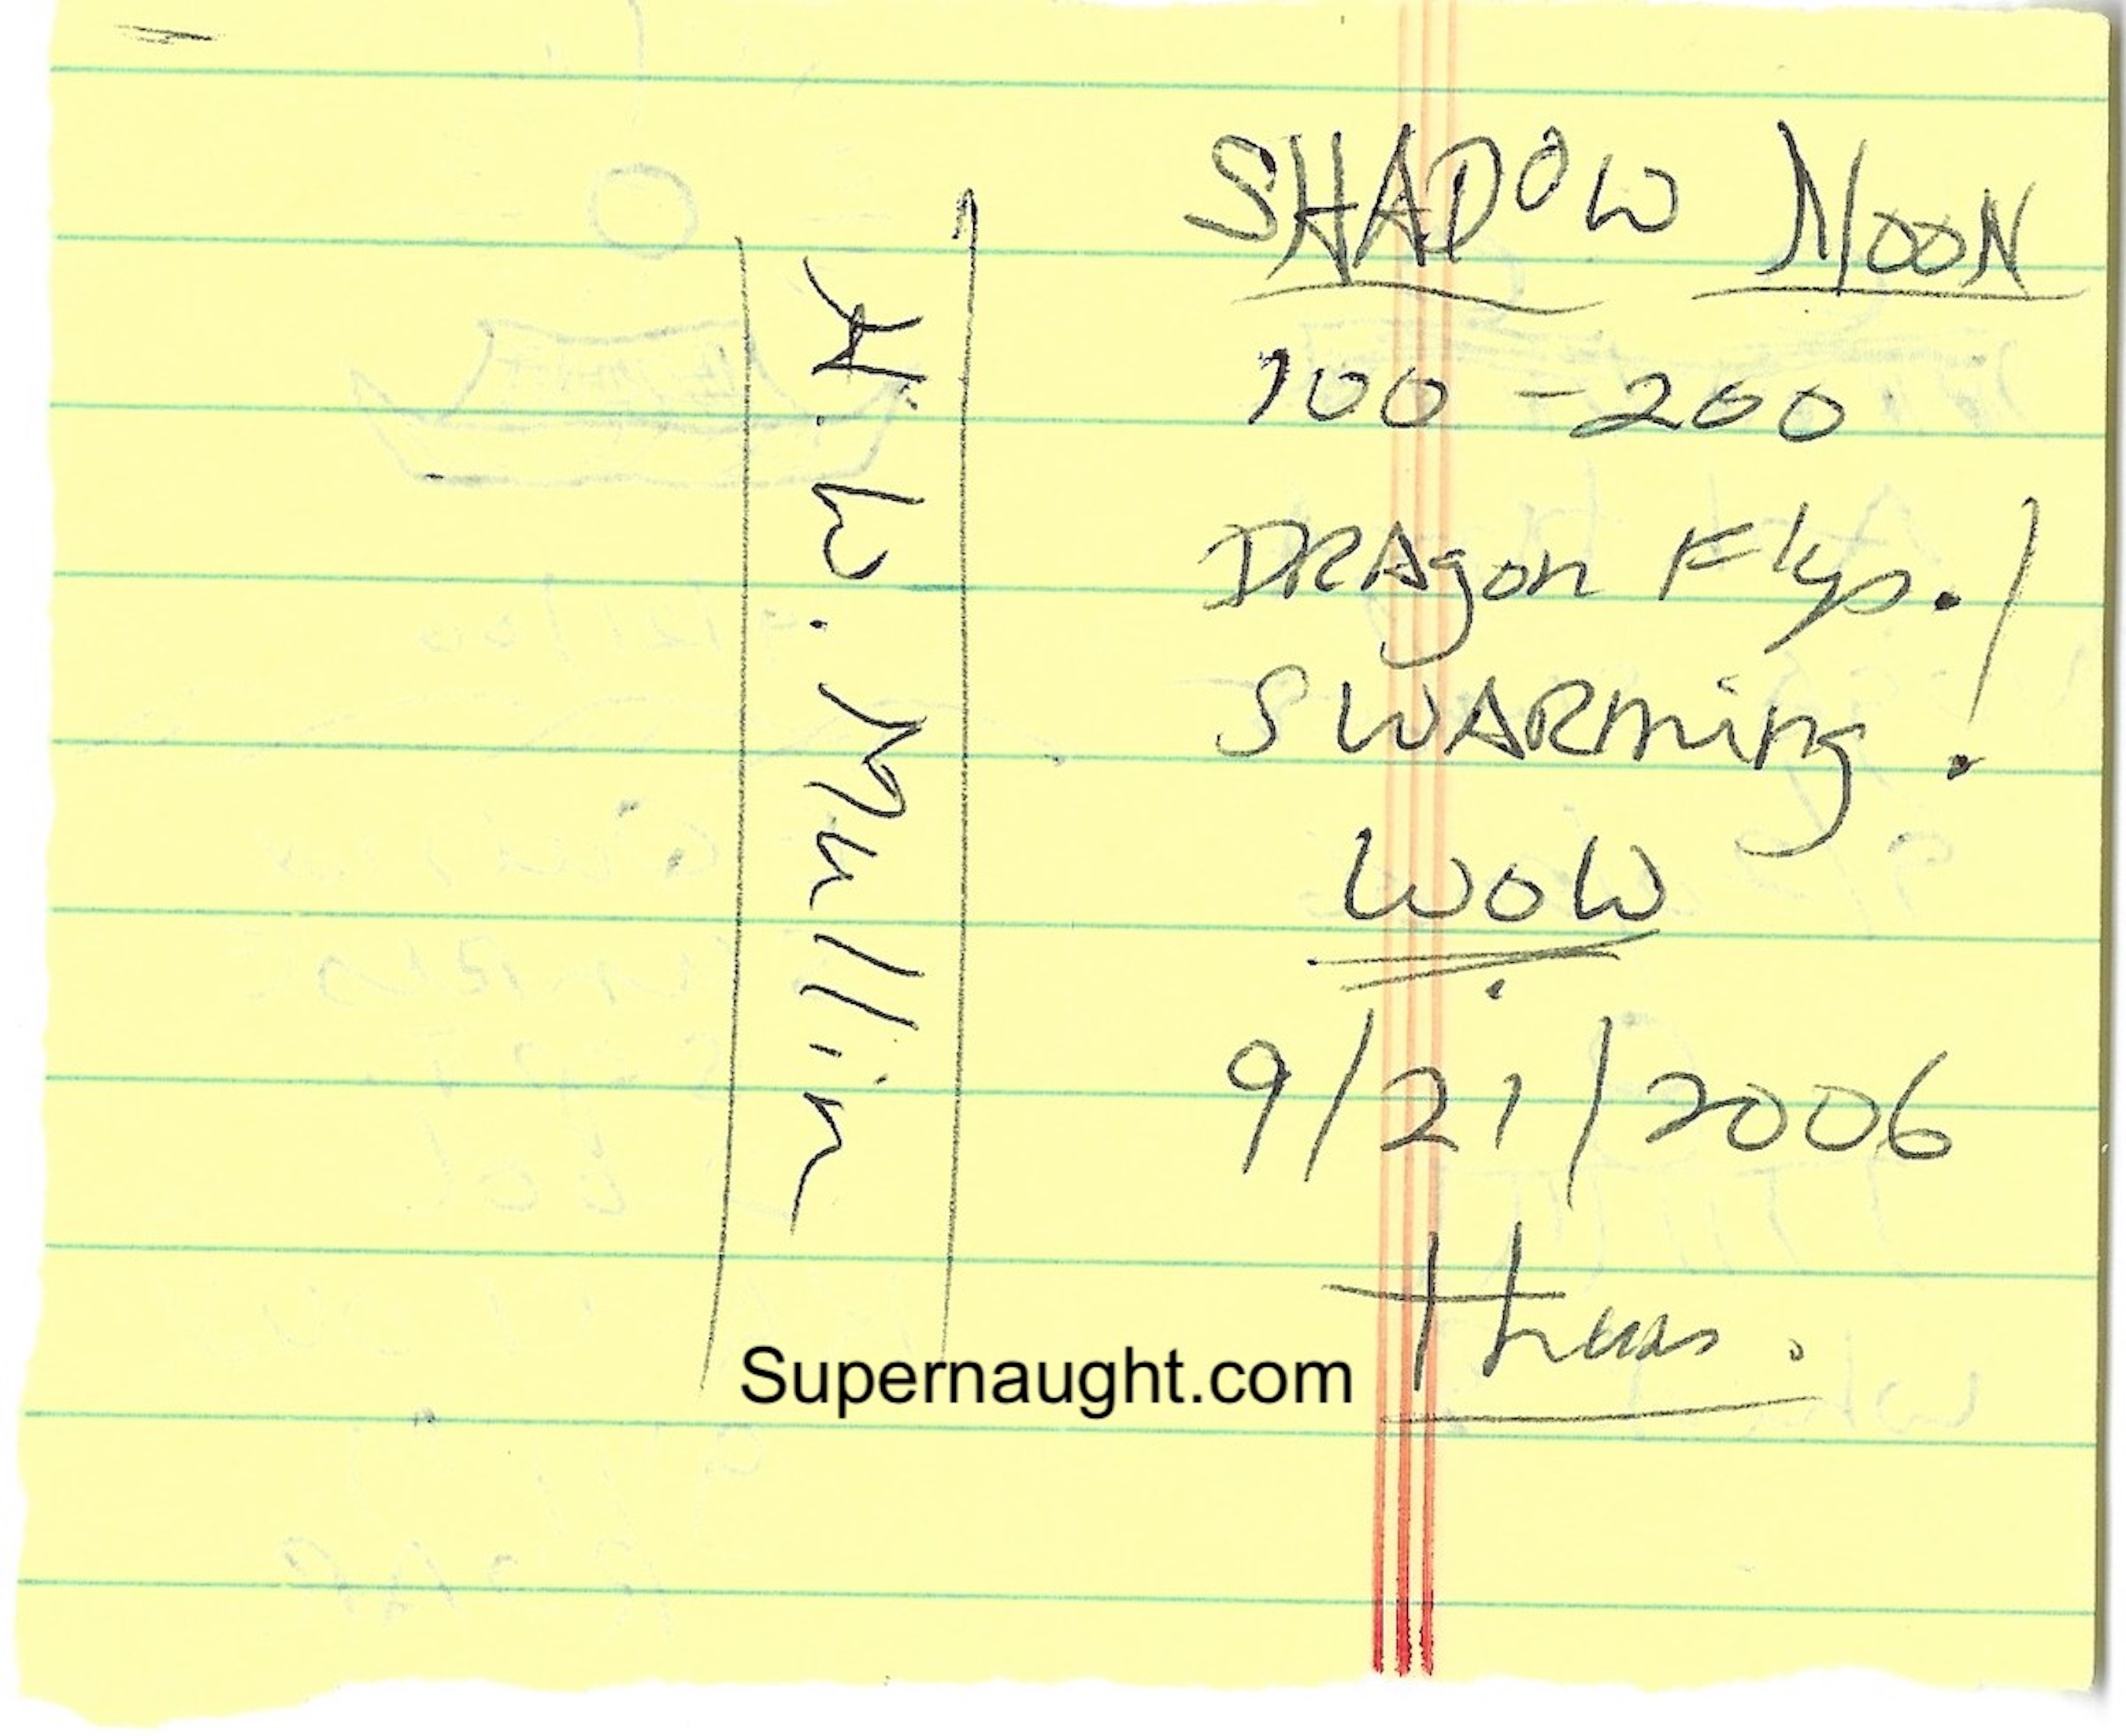 SHADOW MOON
100-200
DRAgon Flys.
SWARming!
WOW
9/21/2006
thurs.
H. W. Mullin
Supernaught.com